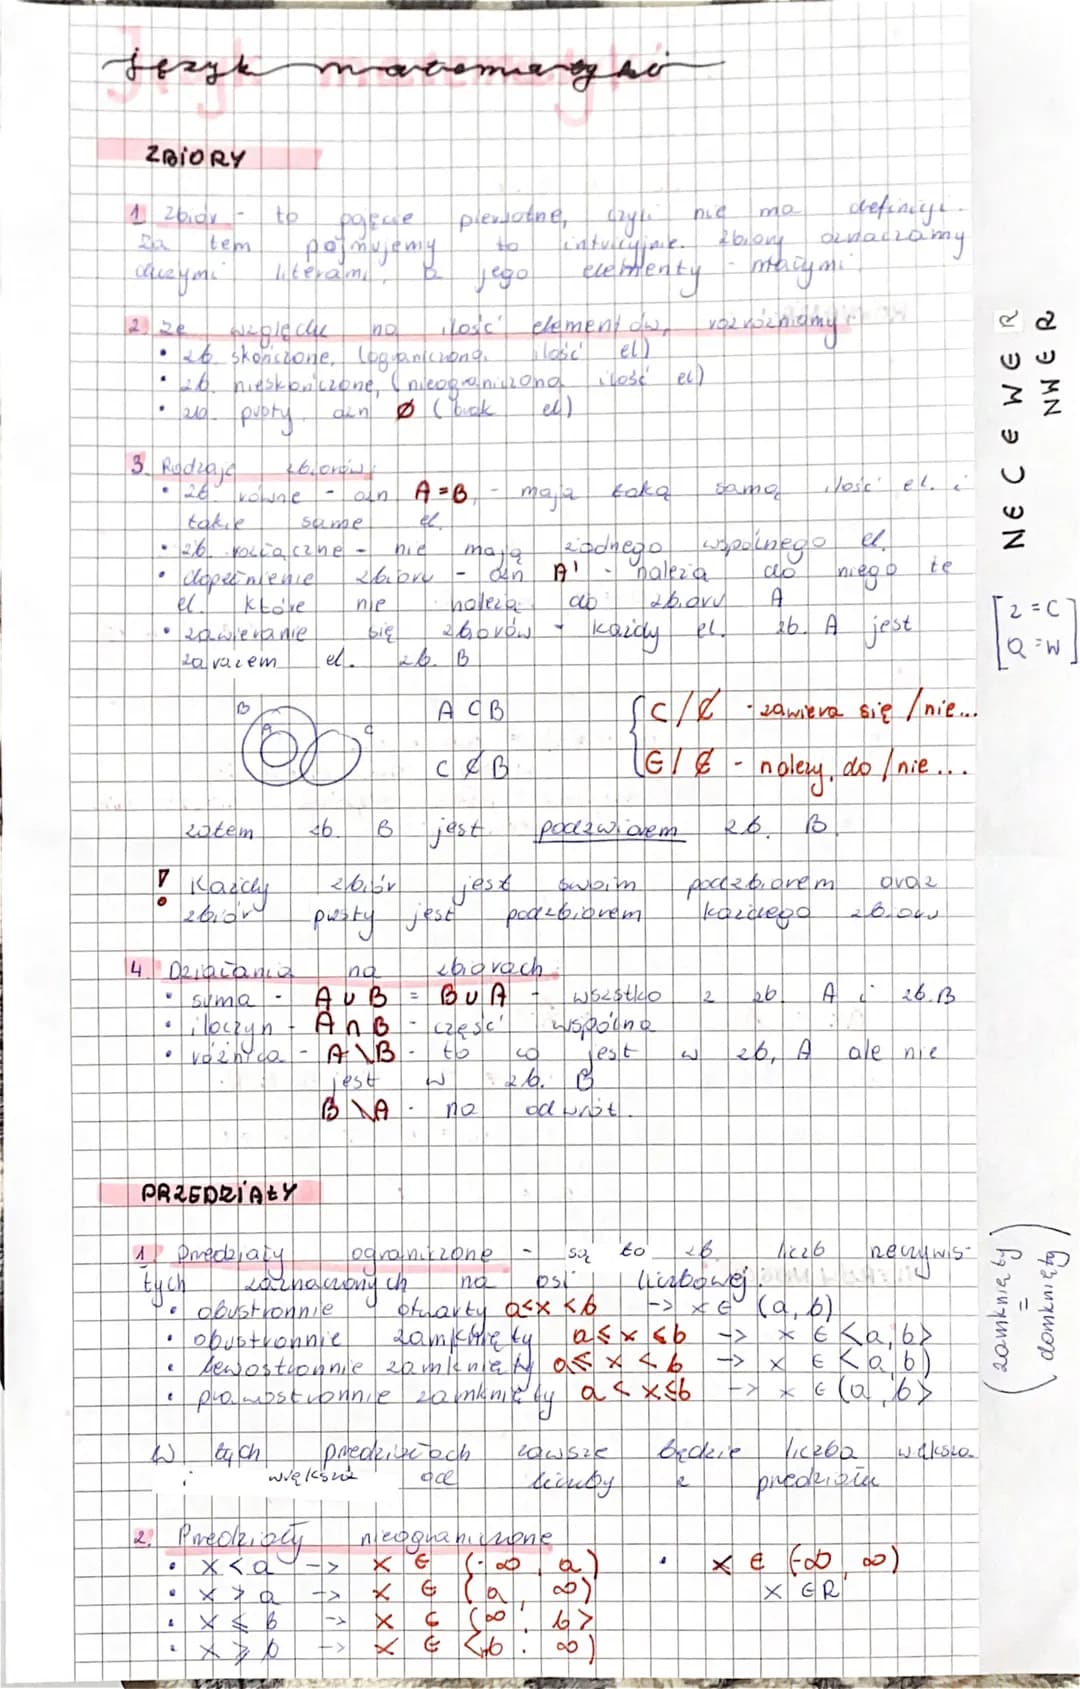 język matematyki
ZBIORY
1 Zbiór - to pojęcie pierwotne, czyli nie ma definicji.
Za tem pojmujemy to intuicyjnie. Zbiory oznaczamy
dużymi literami, a jego elementy - małymi
2. ze względu na ilość elementów, rozróżniamy
• zb. skończone, (ograniczona ilość el)
• zb. nieskończone, (nieograniczona ilość el)
• zb. pusty, ozn ∅ (brak el)
3. Rodzaje zbiorów
• zb. równe - ozn A=B, - mają taką samą ilość el. i
takie same el.
• zb. rozłączne - nie mają żadnego wspólnego el.
• dopełnienie zbioru - ozn A' - należą do niego te
el. które nie należą do zbioru A
• zawieranie się zbiorów - każdy el. zb. A jest
zarazem el. zb. B
B A C
A ⊂ B
C ⊄ B
⊂/⊄ - zawiera się /nie...
∈/∉ - należy do /nie...
zatem zb. B jest podzwiorem zb. B
! Każdy zbiór jest swoim podzbiorem oraz
zbiór pusty jest podzbiorem każdego zbioru
4. Działania na zbiorach
• suma - A ∪ B = B ∪ A - wszstko z zb. A i zb. B
• iloczyn - A ∩ B - część wspólna
• różnica - A \ B - to co jest w zb, A ale nie
jest w zb. B
B \ A - na odwrót.
PRZEDZIAŁY
1. Przedziały ograniczone - są to zb. liczb rzeczywis-
tych zaznaczonych na osi liczbowej
• obustronnie otwarty a<x<b -> x ∈ (a, b)
• obustronnie zamknięty a≤x≤b -> x ∈ <a, b>
• lewostronnie zamknięty a≤x<b -> x ∈ <a, b)
• prawostronnie zamknięty a<x≤b -> x ∈ (a, b>
W tych przedziałach zawsze będzie liczba większa
i większa od liczby z przedziału
2. Przedziały nieograniczone
• x<a -> x ∈ (-∞, a)
• x>a -> x ∈ (a, ∞)
• x≤b -> x ∈ (∞, b>
• x≥b -> x ∈ <b, ∞)
• x ∈ (-∞, ∞)
x ∈ R
NECEWER
NWER
[z=C
Q=W]
(zamknięty
=
domknięty)